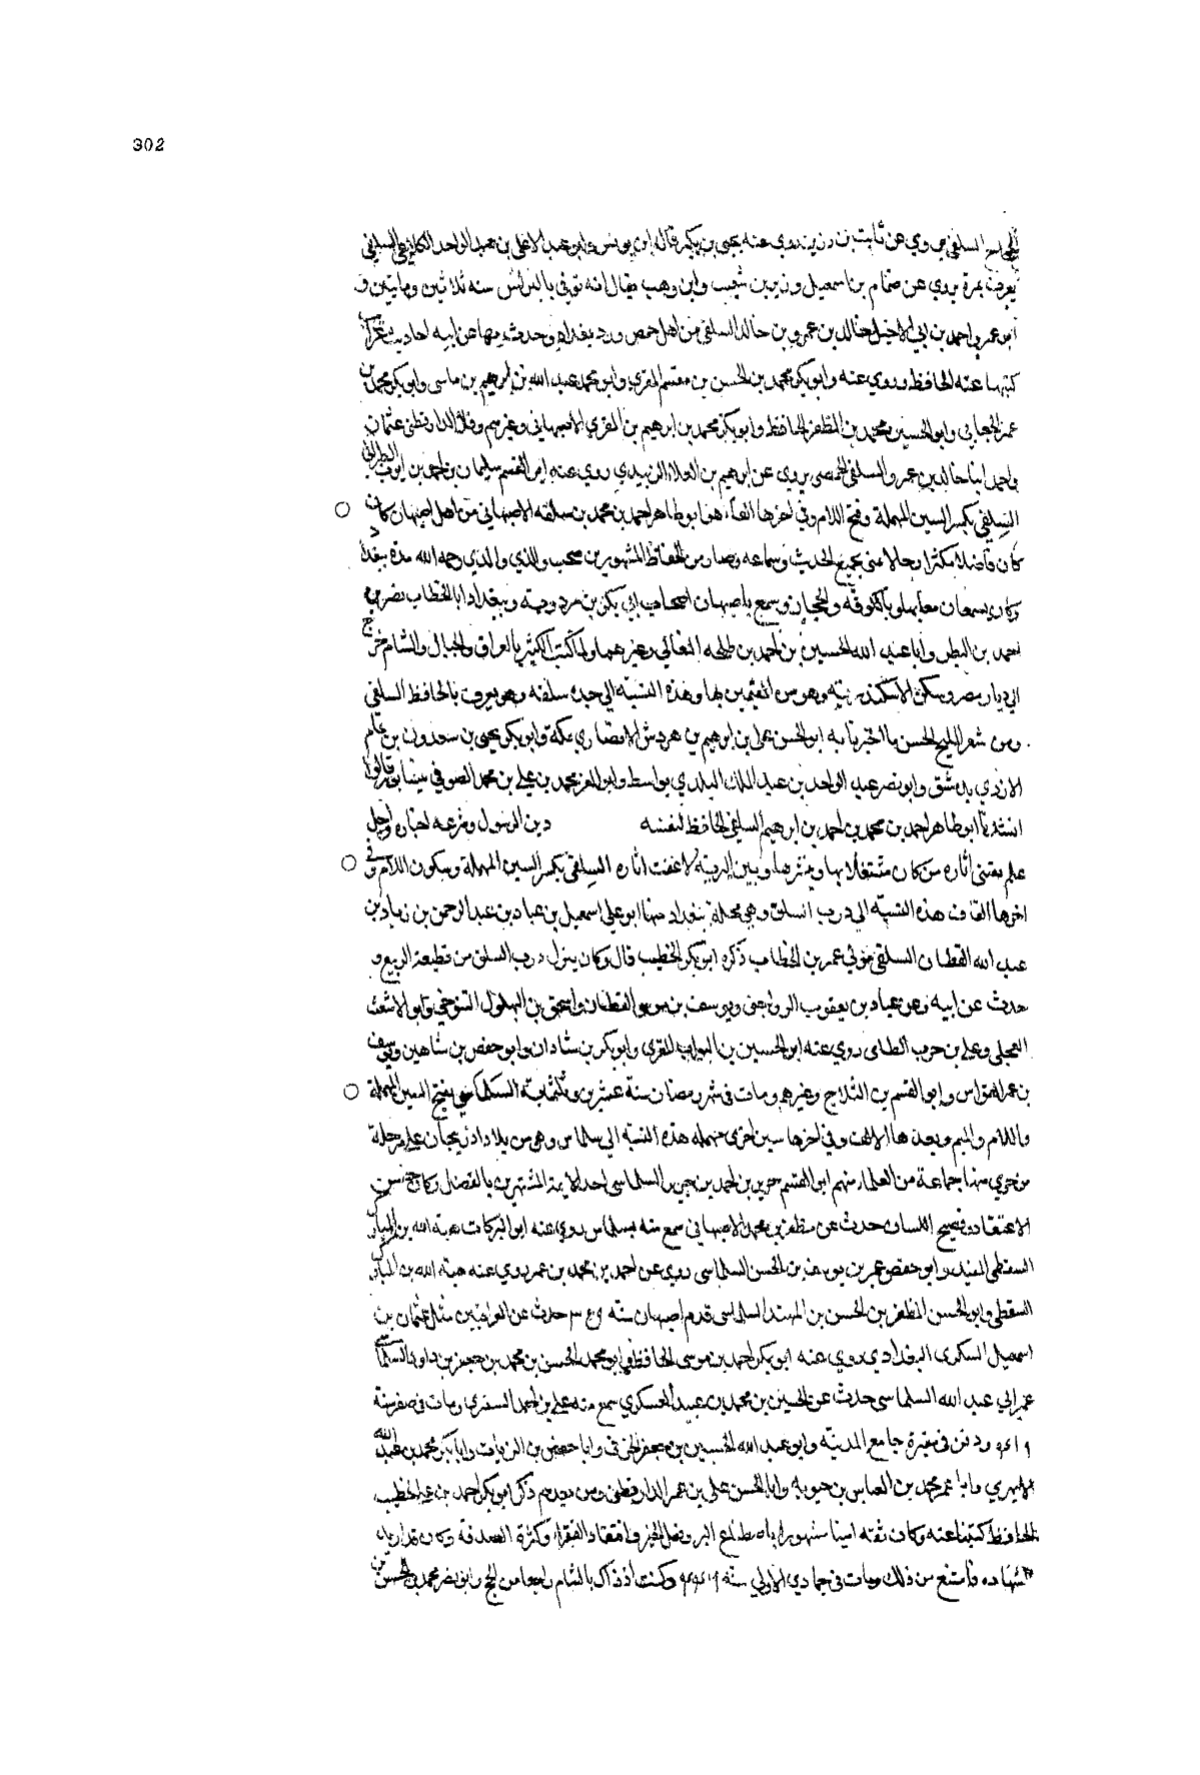 302
السلفي يروي عن ثابت بن رزين روى عنه يحيى بن بكير قاله ابن يونس وابو عبد الاعلى بن عبد الواحد الكلاعي السلفي
يعرف بمرة يروي عن ضمام بن اسمعيل وزين بن شعيب وابن وهب يقال انه توفي بالبرلس سنه ثلاثين ومايتين و
ابو عمرو احمد بن ابي الاخيل خالد بن عمرو بن خالد السلفي من اهل حمص ورد بغداد وحدث بها عن ابيه احاديث غرا
كتبها عنه الحافظ وروي عنه وابو بكر محمد بن الحسن بن مقسم المقري وابو محمد عبد الله بن ابرهيم بن ماسي وابو بكر محمد بن
عمر الجعابي وابو الحسين محمد بن المظفر الحافظ وابو بكر محمد بن ابرهيم بن المقري الاصبهاني وغيرهم وقال الدارقطني عثمان
واحمد ابنا خالد بن عمرو السلفي الحمصي يروي عن ابرهيم بن العلاء الزبيدي روي عنه ابو القسم سليمان بن احمد بن ايوب الطبراني
السلفي بكسر السين المهملة وفتح اللام وفي اخرها الفاء هو ابو طاهر احمد بن محمد بن سلفه الاصبهاني من اهل اصبهان كان
كان فاضلا مكثرا رحالا عني بجمع الحديث وسماعه وصار من الحفاظ المشهورين صحب والدي والدي رحمه الله مدة ببغداد
وكان يسمعان معا بها وبالكوفه والحجاز وسمع باصبهان اصحاب ابي بكر بن مردويه وببغداد ابا الخطاب نصر بن
احمد بن البطر وابا عبد الله الحسين بن احمد بن طلحه النعالي وغيرهما ولما كتب الكثير بالعراق والجبال والشام خرج
الى ديار مصر وسكن الاسكندريه وهو من المقيمين بها وهذه النسبة الى جده سلفه وهو يعرف بالحافظ السلفي
ومن شعر المليح الحسن ما اخبرنا به ابو الحسن علي بن ابرهيم بن هردش الانصاري بمكة وابو بكر يحيى بن سعدون بن تمام
الازدي بدمشق وابو نصر عبد الواحد بن عبد الملك البلدي بواسط وابو العز محمد بن علي بن محمد الصوفي بنيسابور قالوا
انشدنا ابو طاهر احمد بن محمد بن احمد بن ابرهيم السلفي الحافظ لنفسه دين الرسول وشرعه اخباره واجل
علم يقتني اثاره من كان مشتغلا بها وبنشرها وبين البرية لا عفت اثاره السلقي بكسر السين المهملة وسكون اللام وفي
اخرها القاف هذه النسبة الى درب السلق وهي محلة ببغداد منها ابو علي اسمعيل بن عباد بن عبد الرحمن بن زياد بن
عبد الله القطان السلقي مولى عمر بن الخطاب ذكره ابو بكر الخطيب قال وكان ينزل درب السلق من قطيعة الربيع و
حدث عن ابيه وعن عباد بن يعقوب الرواجني ويوسف بن موسى القطان واسحق بن البهلول التنوخي وابو الاشعث
العجلي وعلي بن حرب الطاي روي عنه ابو الحسين بن البواب المقري وابو بكر بن شاذان وابو حفص بن شاهين ويوسف
بن عمر القواس وابو القسم بن الثلاج وغيرهم ومات في شهر رمضان سنة عشرين وثلثماية السلماسي بفتح السين المهملة
واللام والميم وبعدها الالف وفي اخرها سين اخرى مهمله هذه النسبه الى سلماس وهي من بلاد اذربيجان على مرحلة
من خوي منها جماعة من العلماء منهم ابو القسم حرير بن احمد بن حرير السلماسي احد الايمة المشهورين بالفضل وكان حسن
الاعتقاد وفصيح اللسان حدث عن مظفر بن محمد الاصبهاني سمع منه بسلماس روي عنه ابو البركات هبة الله بن المبارك
السقطي المفيد وابو حفص عمر بن يوسف بن الحسن السلماسي روي عن احمد بن محمد بن عمر روي عنه هبة الله بن المبارك
السقطي وابو الحسن المظفر بن الحسن بن المهند السلماسي قدم اصبهان سنه حدث عن العراقيين مثل عثمان بن
اسمعيل السكري البغدادي روي عنه ابو بكر احمد بن موسى الحافظ وابو محمد الحسن بن محمد بن جعفر بن داود السلماسي
عم ابي عبد الله السلماسي حدث عن الحسين بن محمد بن عبيد العسكري سمع منه علي بن احمد السقري ومات في صفر سنة
ودفن في مقبرة جامع المدينه وابو عبد الله الحسين بن جعفر الخرقي وابا حفص بن الزيات وابا بكر محمد بن عبد الله
الابهري وابا عمر محمد بن العباس بن حيويه وابا الحسن علي بن عمر الدارقطني ومن بعدهم ذكر ابو بكر احمد بن علي الخطيب
الحافظ كتبنا عنه وكان ثقه امينا مشهورا باصطناع البر وفعل الخير وافتقاد الفقراء وكثرة الصدقة وكان قد اريد
للشهاده فامتنع من ذلك ومات في جمادي الاولى سنه وكنت اذ ذاك بالشام راجعا من الحج وابو نصر محمد بن الحسن بن